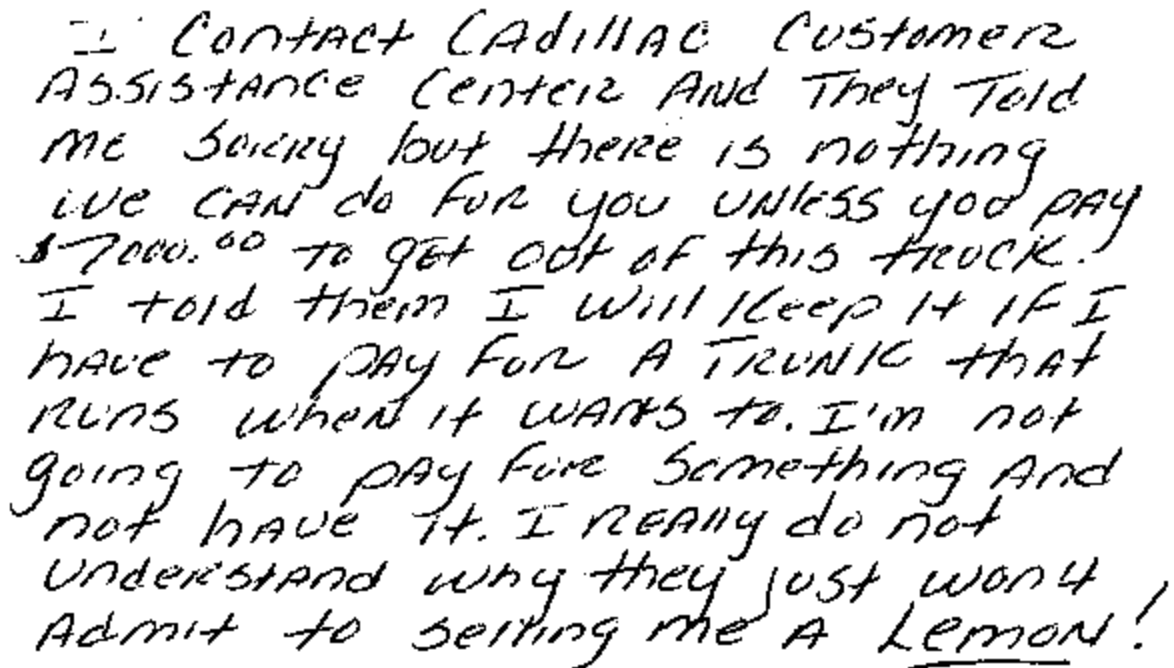 I Contact Cadillac Customer
Assistance Center And They Told
me sorry but there is nothing
we CAN do for you unless you pay
$7000.00 to get out of this truck.
I told them I will Keep it if I
have to pay for A TRUNK that
Runs when it wants to. I'm not
going to pay for something And
not have it. I Really do not
understand why they just won't
Admit to selling me A Lemon!